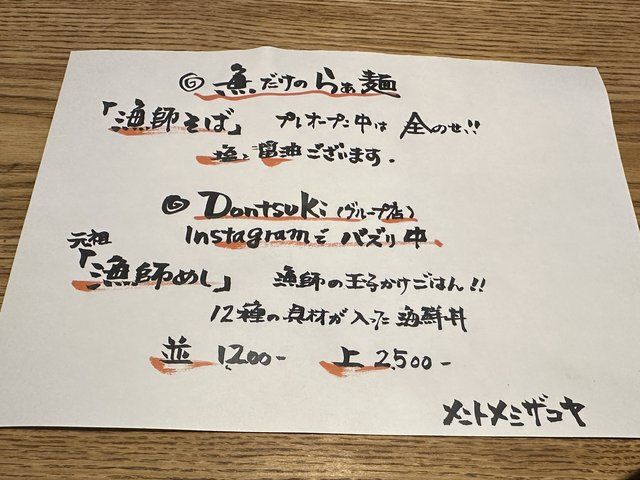 ◎ 魚だけのらぁ麺
「漁師そば」 プレオープン中は 全のせ!!
塩と醤油ございます.
◎ Dontsuki (グループ店)
Instagramで バズり中.
元祖
「漁師めし」 漁師の玉子かけごはん!!
12種の具材が入った海鮮丼
並 1,200- 上 2,500-
メントメシザコヤ